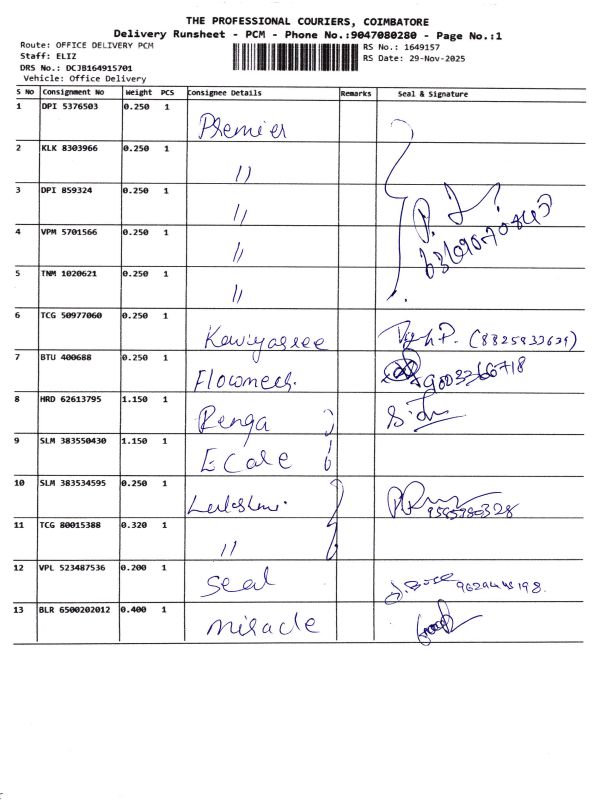 THE PROFESSIONAL COURIERS, COIMBATORE
Delivery Runsheet - PCM - Phone No.:9047080280 - Page No.:1
Route: OFFICE DELIVERY PCM
Staff: ELIZ
DRS No.: DCJB164915701
Vehicle: Office Delivery
RS No.: 1649157
RS Date: 29-Nov-2025
S No Consignment No Weight PCS Consignee Details Remarks Seal & Signature
1 DPI 5376503 0.250 1 Premier
2 KLK 8303966 0.250 1 "
3 DPI 859324 0.250 1 "
4 VPM 5701566 0.250 1 "
5 TNM 1020621 0.250 1 "
6 TCG 50977060 0.250 1 Kawiyasree
7 BTU 400688 0.250 1 Flowmech. 9003366718
8 HRD 62613795 1.150 1 Renga
9 SLM 383550430 1.150 1 E Cale
10 SLM 383534595 0.250 1 9585780328
11 TCG 80015388 0.320 1 "
12 VPL 523487536 0.200 1 Seal J. Bose
13 BLR 6500202012 0.400 1 Miracle